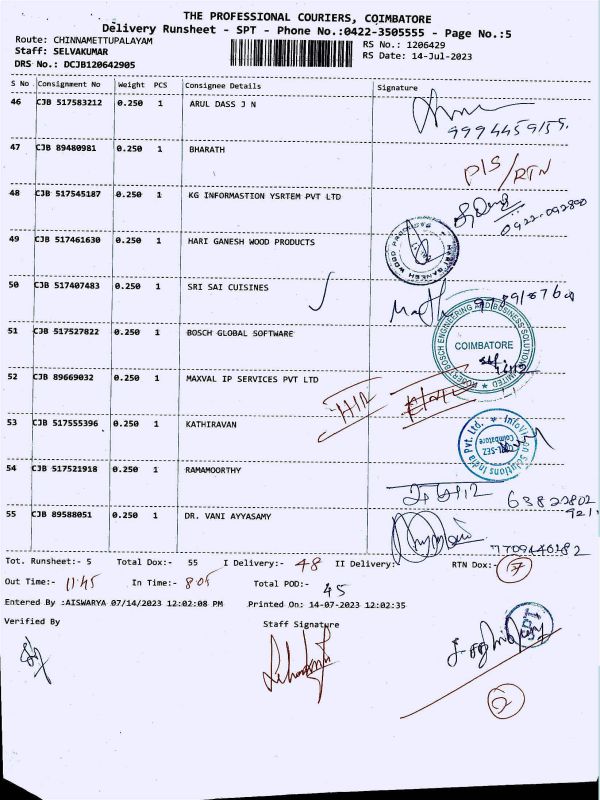 THE PROFESSIONAL COURIERS, COIMBATORE
Delivery Runsheet - SPT - Phone No.:0422-3505555 - Page No.:5
Route: CHINNAMETTUPALAYAM
RS No.: 1206429
Staff: SELVAKUMAR
RS Date: 14-Jul-2023
DRS No.: DCJB120642905
S No Consignment No Weight PCS Consignee Details Signature
46 CJB 517583212 0.250 1 ARUL DASS J N
9994459155.
47 CJB 89480981 0.250 1 BHARATH
P/S/RTN
48 CJB 517545187 0.250 1 KG INFORMASTION YSRTEM PVT LTD
0922-092890
49 CJB 517461630 0.250 1 HARI GANESH WOOD PRODUCTS
50 CJB 517407483 0.250 1 SRI SAI CUISINES
51 CJB 517527822 0.250 1 BOSCH GLOBAL SOFTWARE
ROBERT BOSCH ENGINEERING AND BUSINESS SOLUTIONS LIMITED
COIMBATORE
52 CJB 89669032 0.250 1 MAXVAL IP SERVICES PVT LTD
53 CJB 517555396 0.250 1 KATHIRAVAN
InfoVision Solutions India Pvt. Ltd.
Coimbatore
54 CJB 517521918 0.250 1 RAMAMOORTHY
63822802
921
55 CJB 89588051 0.250 1 DR. VANI AYYASAMY
7709446182
Tot. Runsheet:- 5 Total Dox:- 55 I Delivery:- 48 II Delivery: RTN Dox:- 7
Out Time:- 11:45 In Time:- 8:05 Total POD:- 45
Entered By :AISWARYA 07/14/2023 12:02:08 PM Printed On: 14-07-2023 12:02:35
Verified By Staff Signature
2